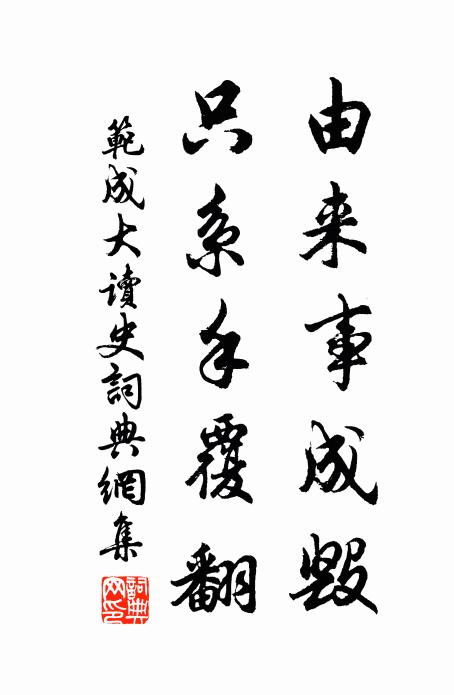 由来事成毁
只系手覆翻
範成大讀史詞典網集
詞典网印